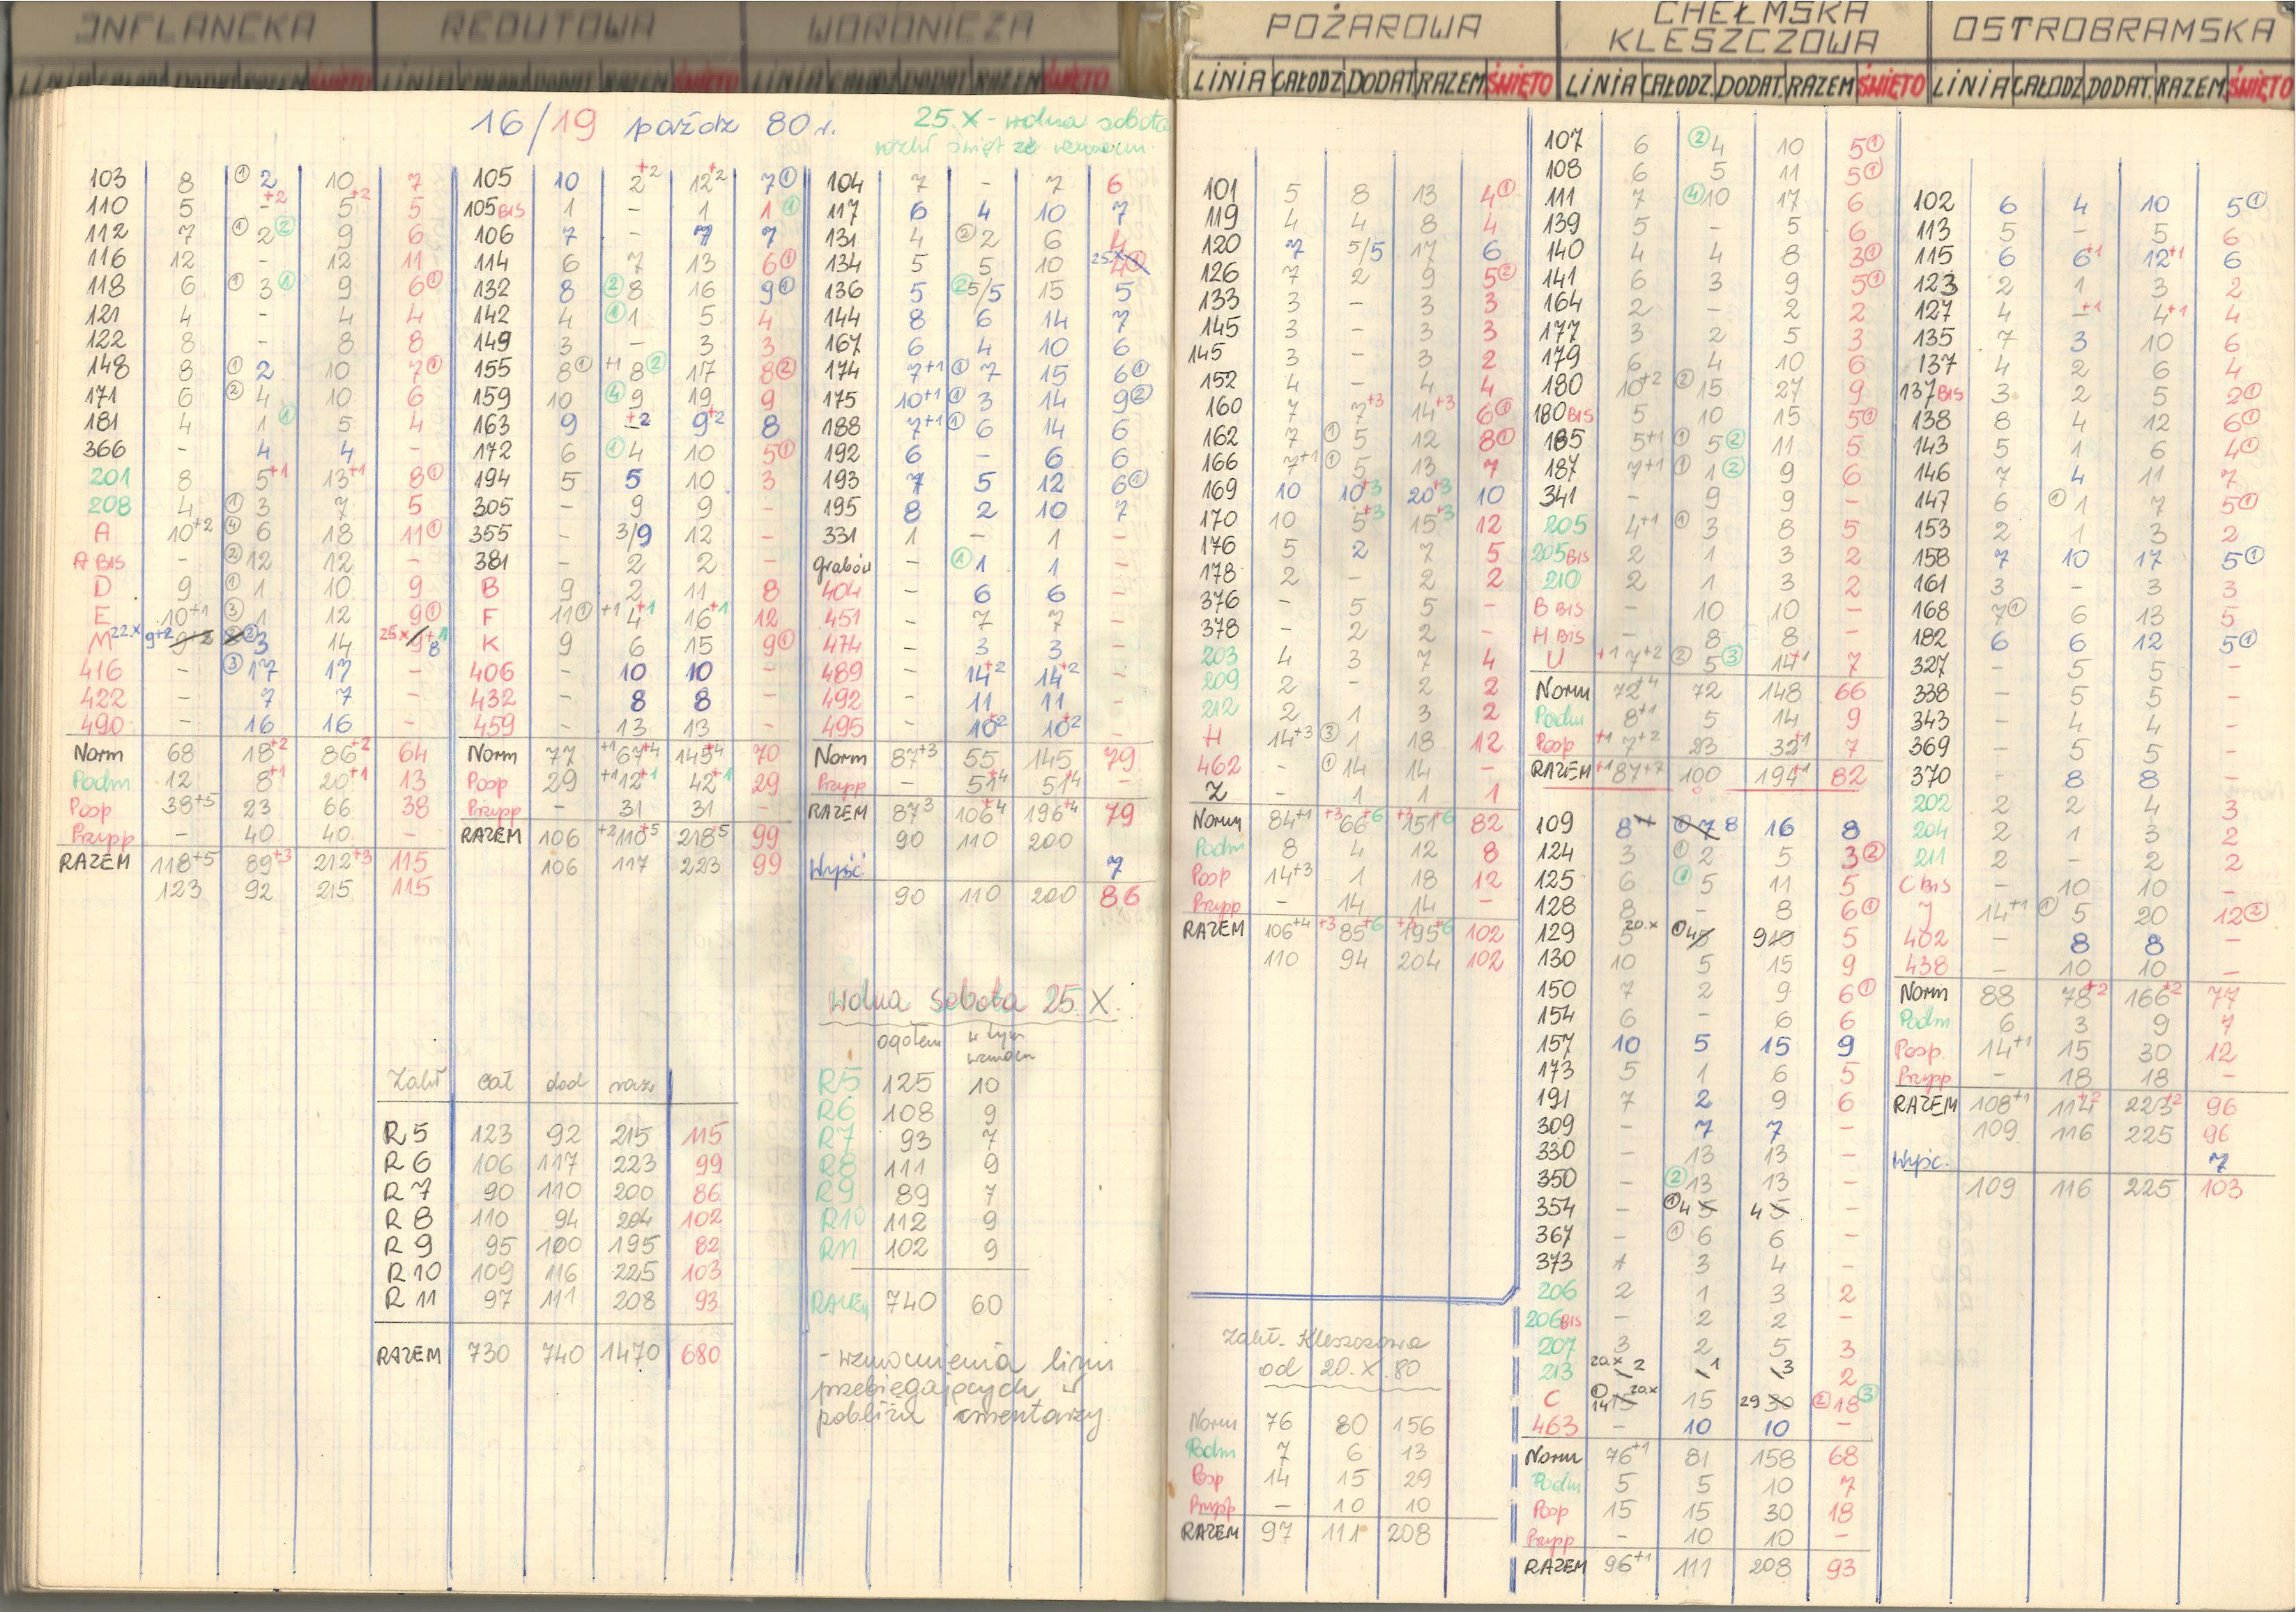 INFLANCKA REDUTOWA WORONICZA
LINIA CAŁODZ DODAT RAZEM ŚWIĘTO LINIA CAŁODZ DODAT RAZEM ŚWIĘTO LINIA CAŁODZ DODAT RAZEM ŚWIĘTO
16/19 paźdz 80 r.
25.X - wolna sobota
103 8 ① 2 10 7
110 5 - +2 5 +2 5
112 7 ① 2 ② 9 6
116 12 - 12 11
118 6 ① 3 ① 9 6 ①
121 4 - 4 4
122 8 - 8 8
148 8 ① 2 10 7 ①
171 6 ② 4 10 6
181 4 1 ① 5 4
366 - 4 4 -
201 8 5 +1 13 +1 8 ①
208 4 ① 3 7 5
A 10 +2 ④ 6 18 11 ①
A BIS - ② 12 12 -
D 9 ① 1 10 9
E 10 +1 ③ 1 12 9 ①
M 22.X 9+2 ② 3 14 25.X 8
416 - ③ 17 17 -
422 - 7 7 -
490 - 16 16 -
Norm 68 18 +2 86 +2 64
Podm 12 8 +1 20 +1 13
Posp 38 +5 23 66 38
Przysp - 40 40 -
RAZEM 118 +5 89 +3 212 +3 115
123 92 215 115
105 10 2 +2 12 +2 7 ①
105 BIS 1 - 1 1 ①
106 7 - 7 7
114 6 7 13 6 ①
132 8 ② 8 16 9 ①
142 4 ① 1 5 4
149 3 - 3 3
155 8 ① +1 8 ② 17 8 ②
159 10 ④ 9 19 9
163 9 - +2 9 +2 8
172 6 ① 4 10 5 ①
194 5 5 10 3
305 - 9 9 -
355 - 3/9 12 -
381 - 2 2 -
B 9 2 11 8
F 11 ① +1 4 +1 16 +1 12
K 9 6 15 9 ①
406 - 10 10 -
432 - 8 8 -
459 - 13 13 -
Norm 77 +1 67 +4 145 +4 70
Posp 29 +1 12 +1 42 +1 29
Przysp - 31 31 -
RAZEM 106 +2 110 +5 218 +5 99
106 117 223 99
Zakł cał dod raz
R5 123 92 215 115
R6 106 117 223 99
R7 90 110 200 86
R8 110 94 204 102
R9 95 100 195 82
R10 109 116 225 103
R11 97 111 208 93
RAZEM 730 740 1470 680
104 7 - 7 6
117 6 4 10 7
131 4 ② 2 6 4
134 5 5 10 25.X 4 ①
136 5 ② 5/5 15 5
144 8 6 14 7
167 6 4 10 6
174 7 +1 ① 7 15 6 ①
175 10 +1 ① 3 14 9 ②
188 7 +1 ① 6 14 6
192 6 - 6 6
193 7 5 12 6 ①
195 8 2 10 7
331 1 - 1 -
Grabów - ① 1 1 -
404 - 6 6 -
451 - 7 7 -
474 - 3 3 -
489 - 14 +2 14 +2 -
492 - 11 11 -
495 - 10 +2 10 +2 -
Norm 87 +3 55 145 79
Przysp - 51 +4 51 +4 -
RAZEM 87 3 106 +4 196 +4 79
90 110 200
Wyść 7
90 110 200 86
Wolna sobota 25.X.
ogółem w tym wzmocn
R5 125 10
R6 108 9
R7 93 7
R8 111 9
R9 89 7
R10 112 9
R11 102 9
RAZEM 740 60
- wzmocnienia linii
przebiegających w
pobliżu cmentarzy
POŻAROWA CHEŁMSKA KLESZCZOWA OSTROBRAMSKA
LINIA CAŁODZ DODAT RAZEM ŚWIĘTO LINIA CAŁODZ. DODAT. RAZEM ŚWIĘTO LINIA CAŁODZ DODAT. RAZEM. ŚWIĘTO
101 5 8 13 4 ①
119 4 4 8 4
120 7 5/5 17 6
126 7 2 9 5 ②
133 3 - 3 3
145 3 - 3 3
145 3 - 3 2
152 4 - 4 4
160 7 7 +3 14 +3 6 ①
162 7 ① 5 12 8 ①
166 7 +1 ① 5 13 7
169 10 10 +3 20 +3 10
170 10 5 +3 15 +3 12
176 5 2 7 5
178 2 - 2 2
376 - 5 5 -
378 - 2 2 -
203 4 3 7 4
209 2 - 2 2
212 2 1 3 2
H 14 +3 ③ 1 18 12
462 - ① 14 14 -
Z - 1 1 1
Norm 84 +1 +3 66 +6 +3 151 +6 82
Podm 8 4 12 8
Posp 14 +3 1 18 12
Przysp - 14 14 -
RAZEM 106 +4 +3 85 +6 +3 195 +6 102
110 94 204 102
Zakł. Kleszczowa
od 20.X.80
Norm 76 80 156
Podm 7 6 13
Posp 14 15 29
Przysp - 10 10
RAZEM 97 111 208
107 6 ② 4 10 5 ①
108 6 5 11 5 ①
111 7 ④ 10 17 6
139 5 - 5 6
140 4 4 8 3 ①
141 6 3 9 5 ①
164 2 - 2 2
177 3 2 5 3
179 6 4 10 6
180 10 +2 ② 15 27 9
180 BIS 5 10 15 5 ①
185 5 +1 ① 5 ② 11 5
187 7 +1 ① 1 ② 9 6
341 - 9 9 -
205 4 +1 ① 3 8 5
205 BIS 2 1 3 2
210 2 1 3 2
B BIS - 10 10 -
H BIS - 8 8 -
U +1 7 +2 ② 5 ③ 14 +1 7
Norm 72 +4 72 148 66
Podm 8 +1 5 14 9
Posp +1 7 +2 23 32 +1 7
RAZEM +1 87 +7 100 194 +1 82
109 8 7 8 16 8
124 3 ① 2 5 3 ②
125 6 ① 5 11 5
128 8 - 8 6 ①
129 5 20.X ① 4 5 9 10 5
130 10 5 15 9
150 7 2 9 6 ①
154 6 - 6 6
157 10 5 15 9
173 5 1 6 5
191 7 2 9 6
309 - 7 7 -
330 - 13 13 -
350 - ② 13 13 -
354 - ① 4 5 4 5 -
367 - ① 6 6 -
373 1 3 4 -
206 2 1 3 2
206 BIS - 2 2 -
207 3 2 5 3
213 20.X 2 1 3 2
C ① 14 15 20.X 15 29 30 ② 18 ③
463 - 10 10 -
Norm 76 +1 81 158 68
Podm 5 5 10 7
Posp 15 15 30 18
Przysp - 10 10 -
RAZEM 96 +1 111 208 93
102 6 4 10 5 ①
113 5 - 5 6
115 6 6 +1 12 +1 6
123 2 1 3 2
127 4 - +1 4 +1 4
135 7 3 10 6
137 4 2 6 4
137 BIS 3 2 5 2 ①
138 8 4 12 6 ①
143 5 1 6 4 ①
146 7 4 11 7
147 6 ① 1 7 5 ①
153 2 1 3 2
158 7 10 17 5 ①
161 3 - 3 3
168 7 ① 6 13 5
182 6 6 12 5 ①
327 - 5 5 -
338 - 5 5 -
343 - 4 4 -
369 - 5 5 -
370 - 8 8 -
202 2 2 4 3
204 2 1 3 2
211 2 - 2 2
C BIS - 10 10 -
J 14 +1 ① 5 20 12 ②
402 - 8 8 -
438 - 10 10 -
Norm 88 78 +2 166 +2 77
Podm 6 3 9 7
Posp. 14 +1 15 30 12
Przysp - 18 18 -
RAZEM 108 +1 114 +2 223 +2 96
109 116 225 96
Wyśc. 7
109 116 225 103